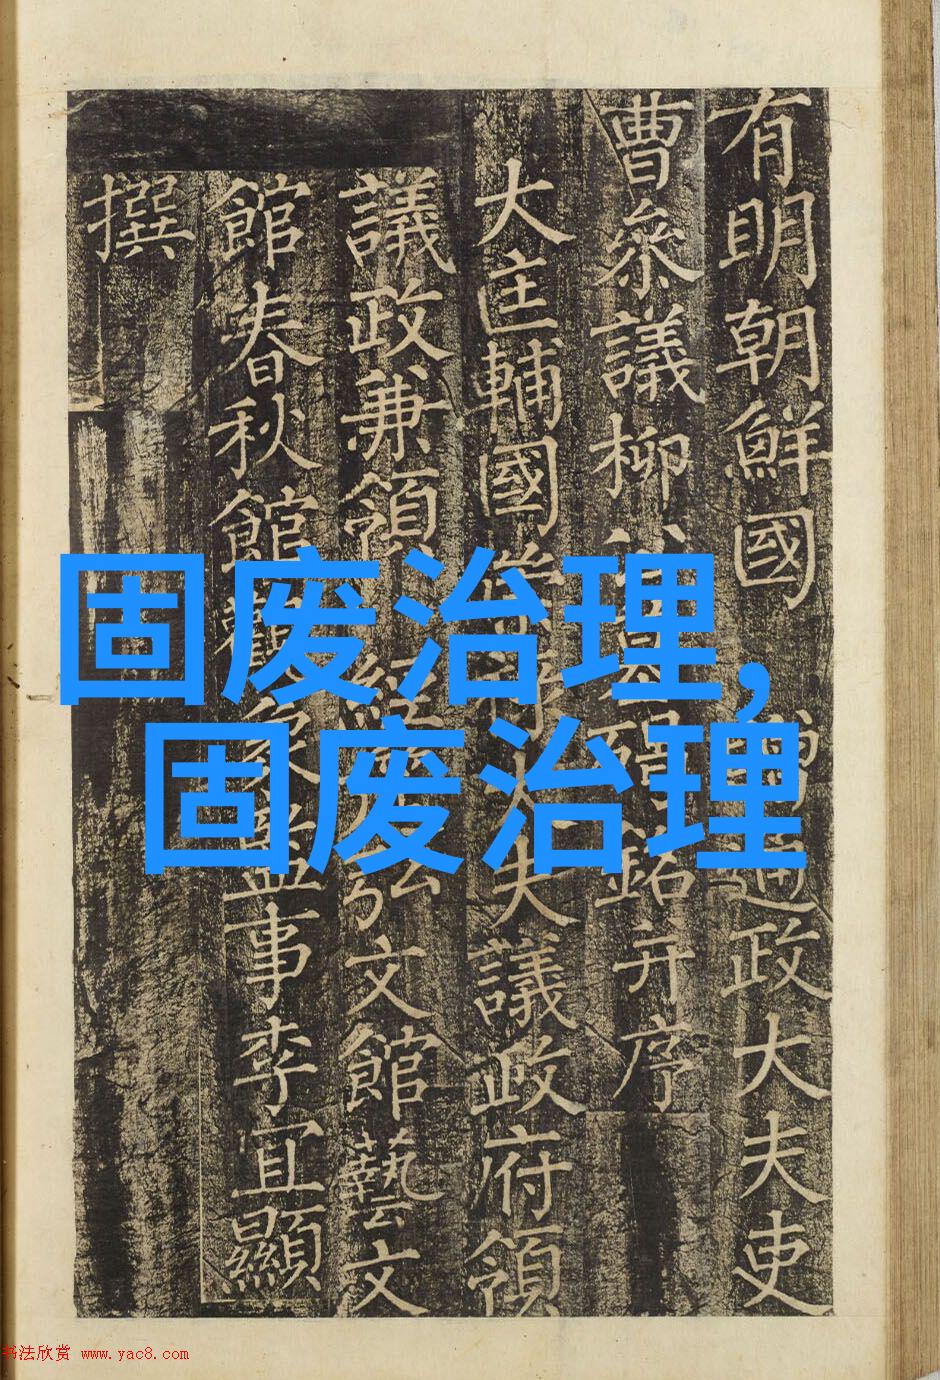 有明朝鮮國
通政大夫吏
曹叅議柳
銘并序
大匡輔國
大夫議政府領
議政兼領
文館藝文
館春秋館觀象監事李宜顯
撰
固废治理,
固废治理
书法欣赏 www.yac8.com